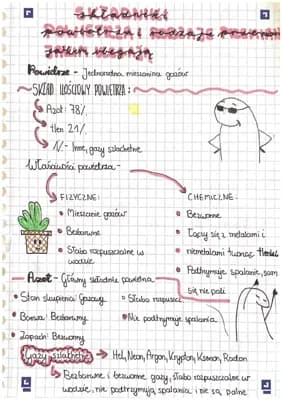 składniki
powietrza i rodzaje przemian
jakim ulegają
Powietrze - Jednorodna mieszanina gazów
SKŁAD ILOŚCIOWY POWIETRZA:
Azot: 78%
tlen 21%
1% - Inne, gazy szlachetne
Właściwości powietrza -
FIZYCZNE:
• Mieszanie gazów
• Bezbarwne
• Słabo rozpuszczalne w
wodzie
CHEMICZNE:
• Bezwonne
• Łączy się z metalami i
niemetalami tworząc tlenki
• Podtrzymuje spalanie, sam
się nie pali
Azot - Główny składnik powietrza
• Stan skupienia: Gazowy
• Słabo rozpuszcz.
• Barwa: Bezbarwny
• Nie podtrzymuje spalania
• Zapach: Bezwonny
Gazy szlachetne → Hel, Neon, Argon, Krypton, Ksenon, Radon
Bezbarwne i bezwonne gazy, słabo rozpuszczalne w
wodzie, nie podtrzymują spalania i nie są palne.